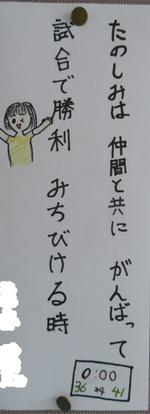 たのしみは 仲間と共に がんばって
試合で勝利 みちびける時
0:00
36 24 41